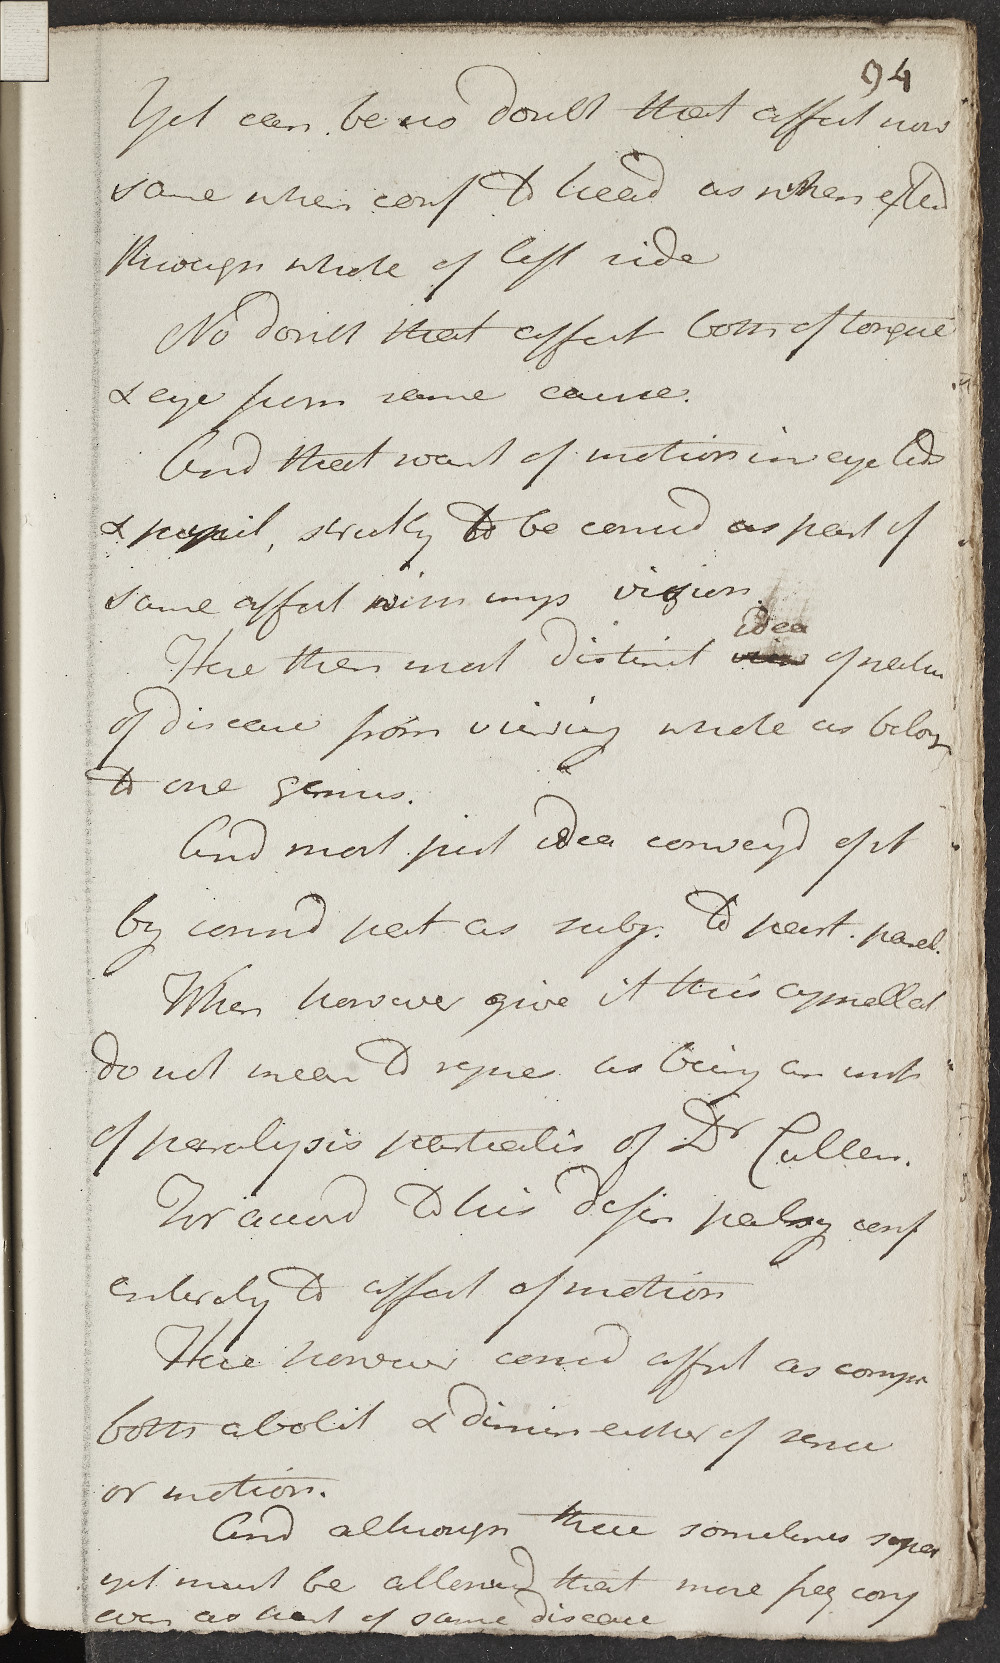 94
Yet can be no doubt that affect now
same when conf to head as when exted
through whole of left side
No doubt that affect both of tongue
& eye from same cause.
And that want of motion in eye lids
& pupil, strictly to be consid as part of
same affect with imp vision.
idea
Here then most distinct view of natur
of disease from viewing whole as belong
to one genus.
And most just idea convey'd of it
by consid pat as subj. to part. paral.
When however give it this appellat
do not mean to repres as being an inst
of paralysis partialis of Dr Cullen.
For accord to his defin palsy conf
entirely to affect of motion
Here however consid affect as compr
both abolit & dimin either of sense
or motion.
And although these sometimes separ
yet must be allowed that more freq conj
even as part of same disease